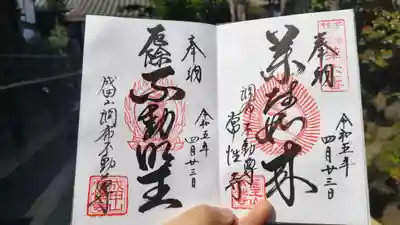 奉拝
薬師如来
調布不動尊
常性寺
令和五年
四月廿三日
奉拝
不動明王
成田山調布不動尊
令和五年
四月廿三日